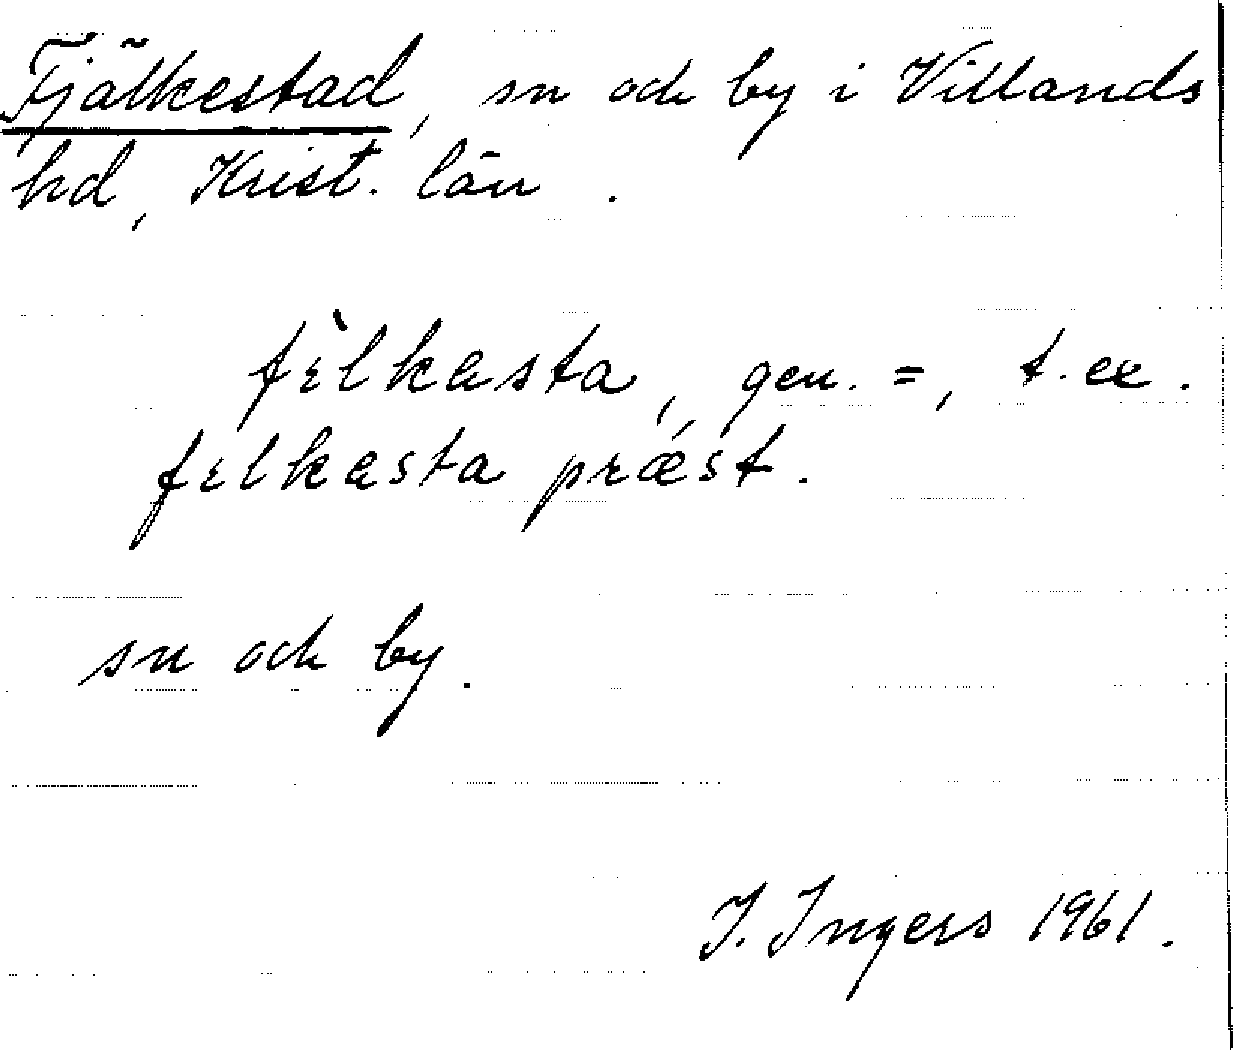 Fjälkestad, sn och by i Villands
hd, Krist. län.
fɛ̀lkasta, gen. =, t. ex.
fɛlkasta prǽst.
sn och by.
I. Ingers 1961.